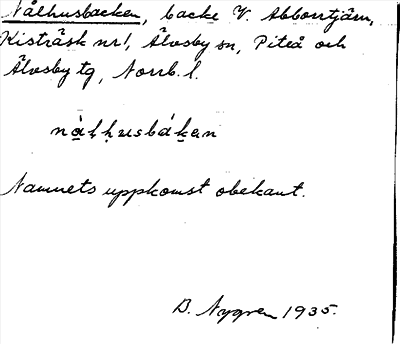 Nålhusbacken, backe V. Abborrtjärn,
Kisträsk nr 1, Älvsby sn, Piteå och
Älvsby tg, Norrb. l.
nàlhusbákan
Namnets uppkomst obekant.
D. Nygren 1935.